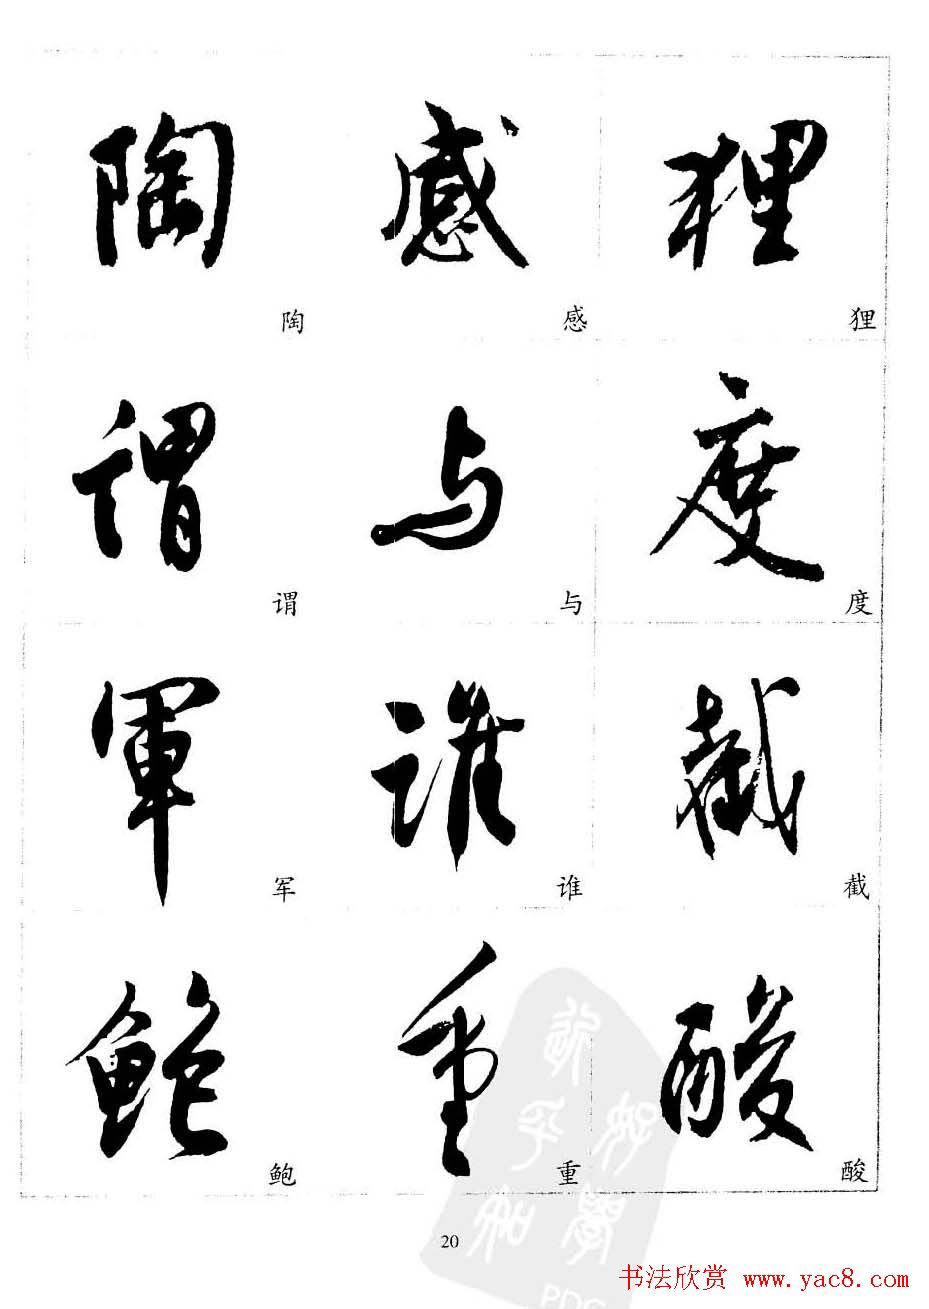 陶 感 狸
陶 感 狸
謂 与 度
谓 与 度
軍 誰 截
军 谁 截
鮑 重 酸
鲍 重 酸
20
书法欣赏 www.yac8.com